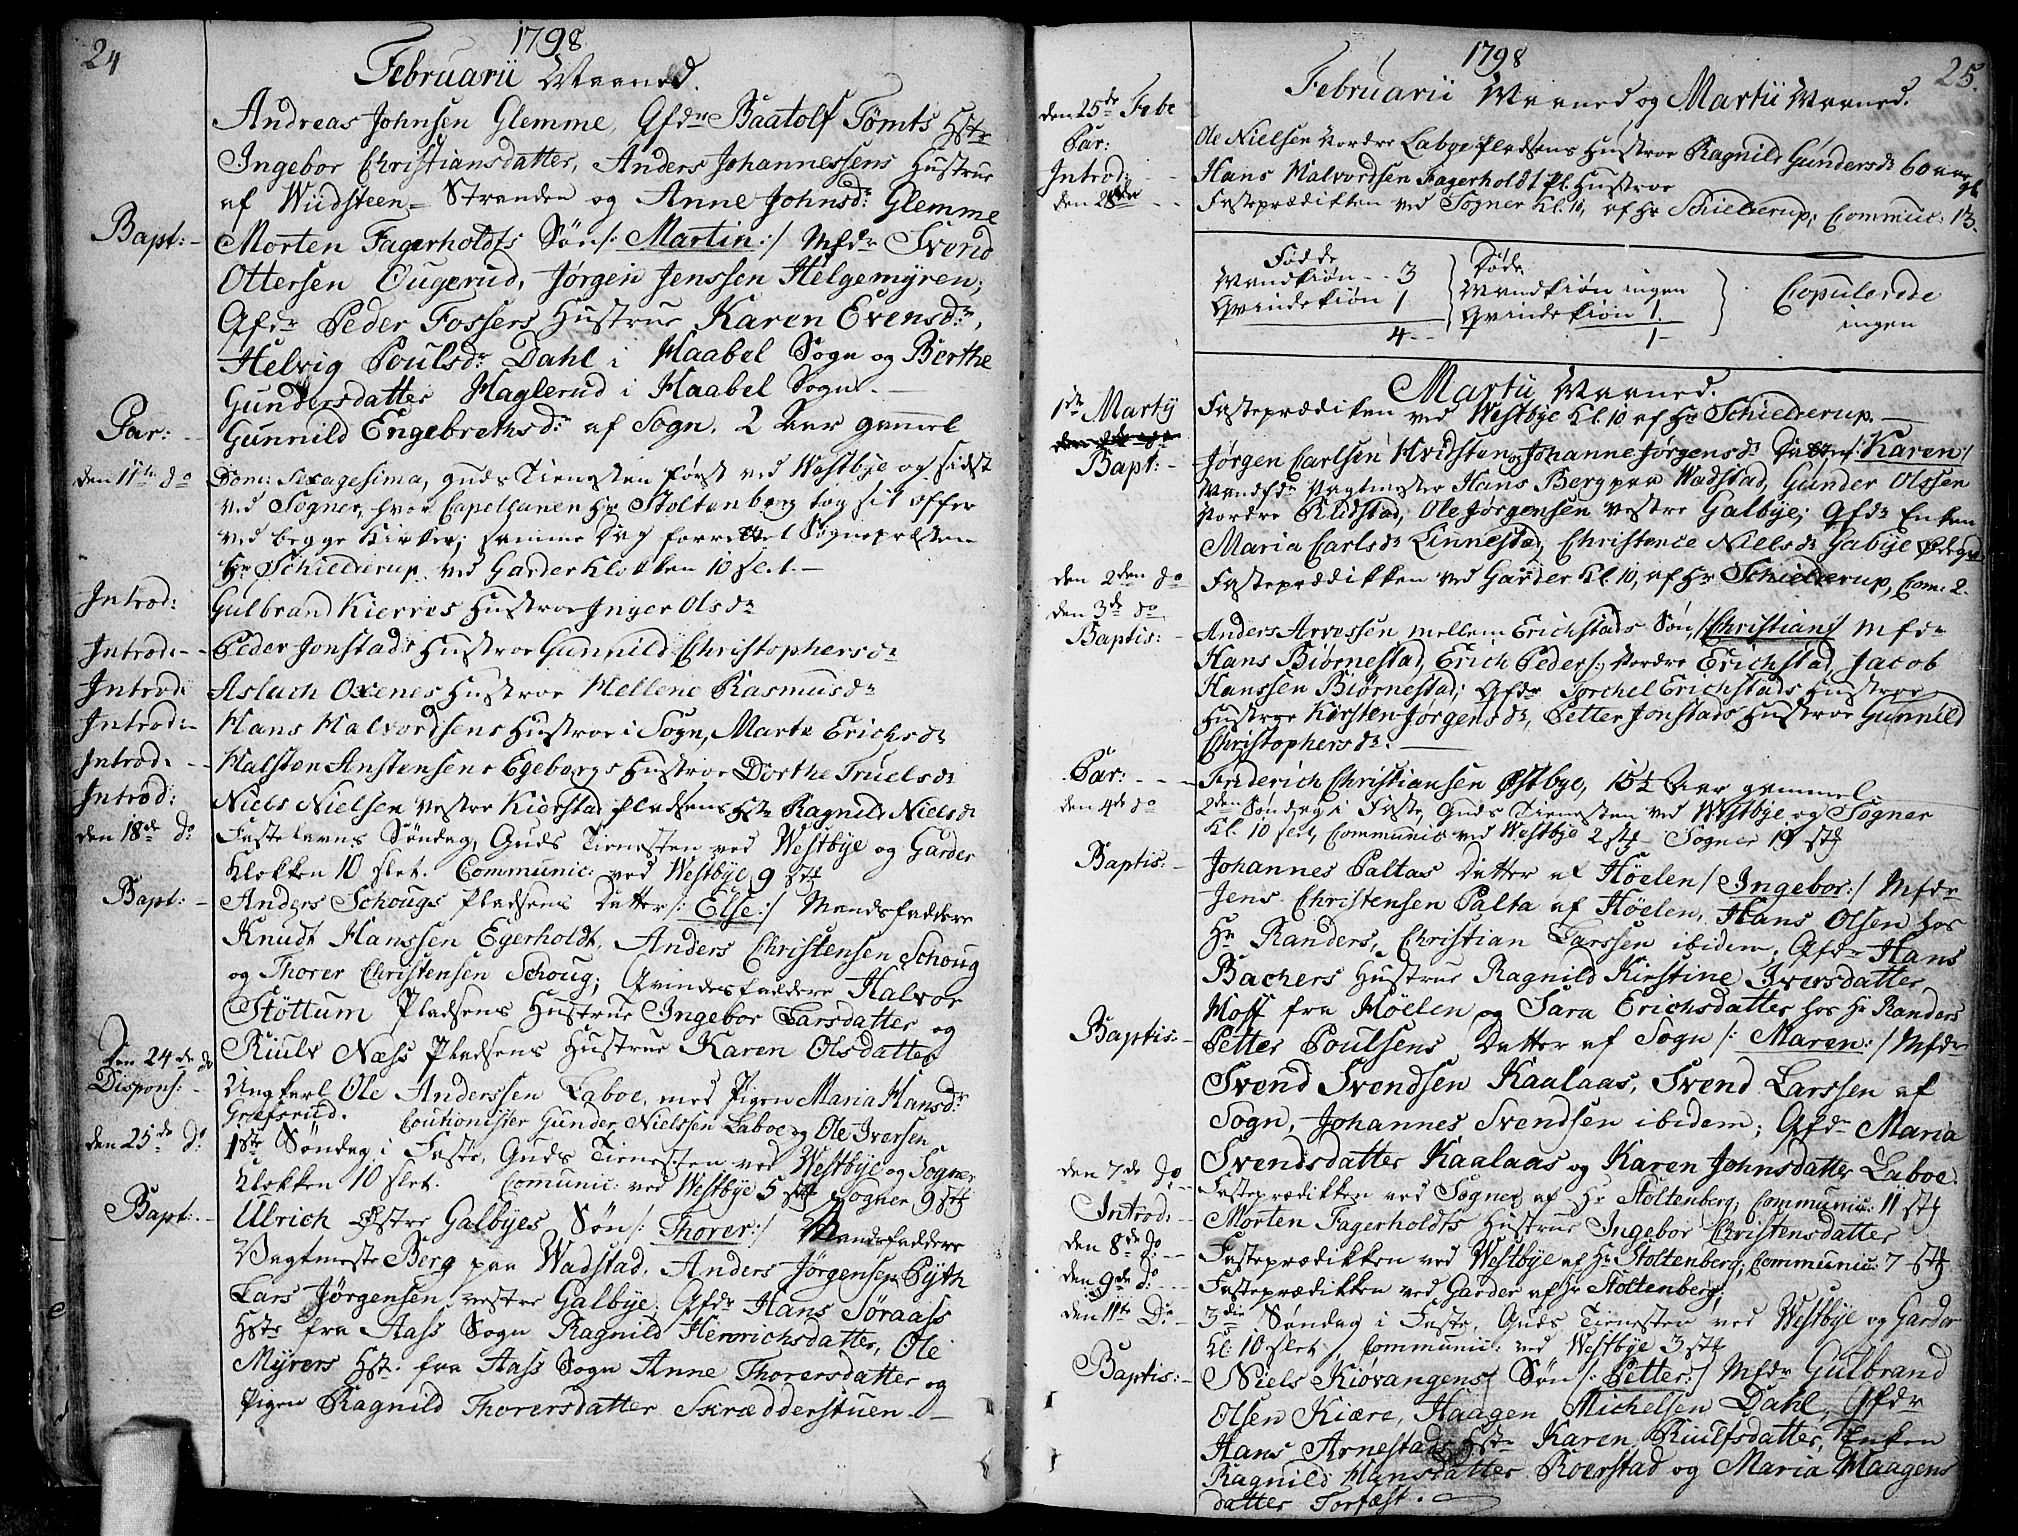 24
1798
Februarii Maaned.
Andreas Johnsen Glemme, Qfdr Baatolf Tømts Hstr
Ingebor Christiansdatter, Anders Johannessens Hustrue
af Wiidsteen= Stranden og Anne Johnsdr Glemme
Bapt: - Morten Fagerholdts Søn /: Martin :/ Mfdr Svend
Ottersen Ougerud, Jørgen Jenssen Helgemyren;
Qfdr Peder Fossers Hustrue Karen Evensdr,
Helvig Poulsdr Dahl i Haabel Sogn og Berthe
Gundersdatter Haglerud i Haabel Sogn. -
Par: - Gunnild Engebrethsdr af Sogn, 2 Aar gammel
den 11te do Dom: Sexagesima, Guds Tienesten først ved Westbye og sidst
ved Sogner, hvor Capellanen Hr Stoltenberg tog sit offer
ved begge Kirker; samme Dag forrettet Sognepræsten
Hr Schielderup ved Garder Klokken 10 slet. -
Introd: Gulbrand Kierres Hustroe Inger Olsdr
Introd: - Peder Jonstads Hustroe Gunnild Christophersdr
Introd: Aslach Oxenes Hustroe Mellene Rasmusdr
Introd: - Hans Halvordsens Hustroe i Sogn, Marte Erichsdr
Introd: - Halsten Anstensens Egebergs Hustroe Dorthe Truelsdr
Introd: Niels Nielsen vestre Kierstad Pladsens Hstr Ragnild Nielsdr
den 18de do Fastelavns Søndag, Guds Tienesten ved Westbye og Garder
Klokken 10 slet. Communic: ved Westbye 9 stk
Bapt: - Anders Schougs Pladsens Datter /: Else :/ Mandsfaddere
Knudt Hanssen Egerholdt, Anders Christensen Schoug
og Thorer Christensen Schoug; Qvindesfaddere Halvor
Støttum Pladsens Hustrue Ingebor Larsdatter og
Riulv Næss Pladsens Hustrue Karen Olsdatter
Den 24de do
Dispens: - Ungkarl Ole Anderssen Laboe, med Pigen Maria Hansdr
Grefsriid. Coutionister Gunder Nielssen Laboe og Ole Iversen
den 25de do 1ste Søndag i Faste, Guds Tienesten ved Westbye og Sogner
Klokken 10 slet. Comunic: ved Westbye 5 stk Sogner 9 stk
Bapt: - Ulrich Østre Galbyes Søn /: Thorer :/ Mandsfaddere
Vagtmeste Berg paa Wadstad, Anders Jørgensen Pyth
Lars Jørgensen vestre Galbye; Qfdr Hans Søraass
Hstr fra Aass Sogn Ragnild Henrichsdatter, Ole
Myrers Hst. fra Aass Sogn Anne Thorersdatter og
Pigen Ragnild Thorersdatter Skrædderstuen -
25.
1798
Februarii Maaned og Martii Maaned.
den 25de Febr
Par: Ole Nielsen Nordre Labye Pladsens Hustroe Ragnild Gundersdr 60 aar gl
Introd: - Hans Halvordsen Fagerholdt Pl. Hustroe
den 28de - Fasteprædiken ved Sogner Kl. 10, af Hr Schielderup; Commuic: 13.
Fødde
Mandkiøn - - 3
Qvindekiøn 1
4 -
Døde
Mandkiøn ingen
Qvindekiøn 1.
1 -
Copulerede
ingen
Martii Maaned.
1de Martij Fasteprædiken ved Westbye Kl. 10 af Hr Schielderup. -
Bapt: - Jørgen Carlsen Hvidsten og Johanne Jørgensdr Datter /: Karen /
Mandfdr Vagtmester Hans Berg paa Wadstad, Gunder Olssen
Nordre Kudstad, Ole Jørgensen Vestre Galbye; Qfdr Enken
Maria Carlsdr Linnestad, Christence Nielsdr Gabye
den 2den do Fasteprædikken ved Garder Kl. 10, af Hr Schielderup, Com: 2.
den 3de do
Baptis: - Anders Arvessen mellem Erichstads Søn, /: Christian / Mfdr
Hans Biørnestad, Erich Peders: Nordre Erichstad, Jacob
Hanssen Biørnestad; Qfdr Torchel Erichstads Hustroe
Hustroe Kirsten Jørgensdr, Petter Jonstads Hustroe Gunnild
Christophersdr: -
Par: - - Friderich Christiansen Østbye, 15½ Aar gammel.
den 4de do 2den Søndag i Faste, Guds Tienesten ved Westbye og Sogner
Kl. 10 slet, Communic: ved Westbye 2 stk - Sogner 19 stk
Baptis: - Johannes Paltas Datter af Høelen / Ingebor :/ Mfdr
Jens Christensen Palta af Høelen, Hans Olsen hos
Hr Randers, Christian Larssen ibidem; Qfdr Hans
Bachers Hustrue Ragnild Kirstine Iversdatter,
Moss fra Høelen og Sara Erichsdatter hos Hr Randers
Baptis: - Petter Poulsens Datter af Sogn /: Maren :/ Mfdr
Svend Svendsen Kaalaas, Svend Larssen af
Sogn, Johannes Svendsen ibidem; Qfdr Maria
Svendsdatter Kaalaas og Karen Johnsdatter Laboe.
den 7de do - Fasteprædikken ved Sogner af Hr Stoltenberg; Communic: 11 stk
Introd: - Morten Fagerholdts Hustrue Ingebor Christensdatter
den 8de do: - Fasteprædikken ved Westbye af Hr Stoltenberg; Communic: 7 stk
den 9de do: - Fasteprædikken ved Garder af Hr Stoltenberg;
den 11te Do - 3die Søndag i Faste, Guds Tienesten ved Westbye og Garder
Kl: 10 slet, Communic: ved Westbye 3 stk
Baptis: - Niels Kiøvangens Søn /: Petter :/ Mfdr Gulbrand
Olsen Kiære, Haagen Michelsen Dahl, Qfdr
Hans Arnestads Hstr Karen Riulfsdatter, Enken
Ragnild Hansdatter Roerstad og Maria Haagens
datter Torfæst. -